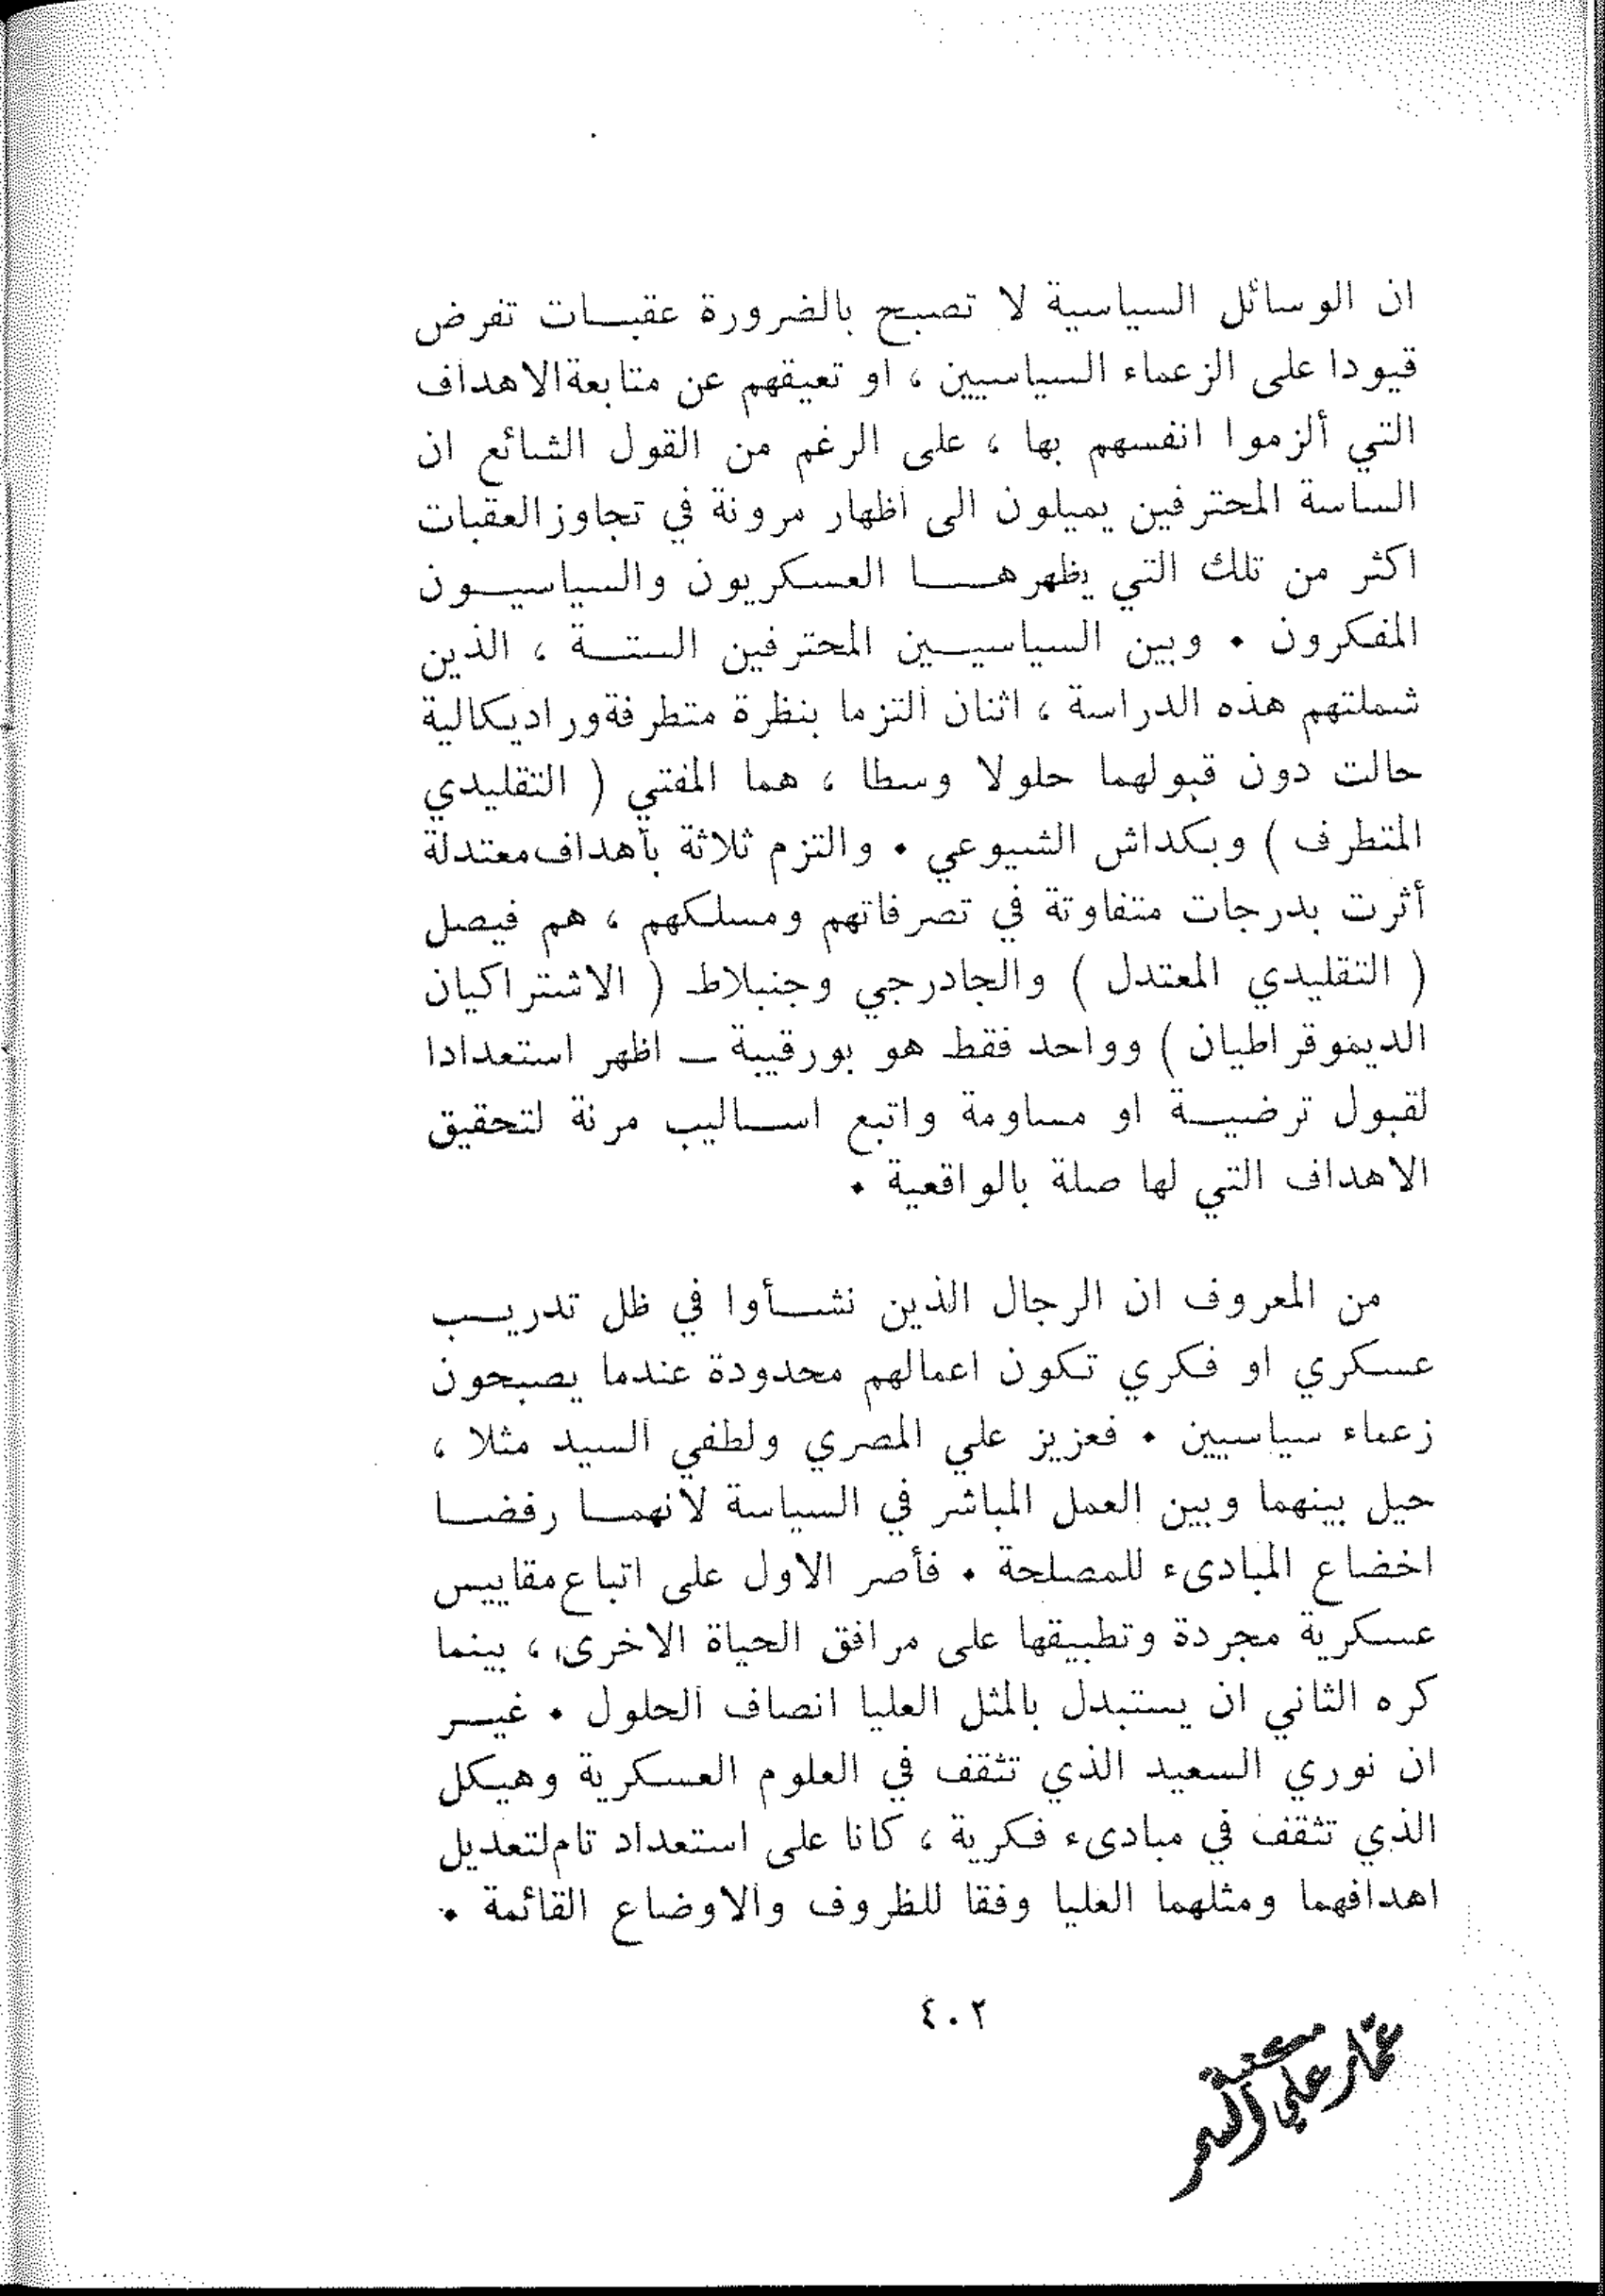 ان الوسائل السياسية لا تصبح بالضرورة عقبات تفرض
قيودا على الزعماء السياسيين ، او تعيقهم عن متابعة الاهداف
التي ألزموا انفسهم بها ، على الرغم من القول الشائع ان
الساسة المحترفين يميلون الى اظهار مرونة في تجاوز العقبات
اكثر من تلك التي يظهرها العسكريون والسياسيون
المفكرون . وبين السياسيين المحترفين الستة ، الذين
شملتهم هذه الدراسة ، اثنان التزما بنظرة متطرفة وراديكالية
حالت دون قبولهما حلولا وسطا ، هما المفتي ( التقليدي
المتطرف ) وبكداش الشيوعي . والتزم ثلاثة بأهداف معتدلة
أثرت بدرجات متفاوتة في تصرفاتهم ومسلكهم ، هم فيصل
( التقليدي المعتدل ) والجادرجي وجنبلاط ( الاشتراكيان
الديموقراطيان ) وواحد فقط هو بورقيبة ــ اظهر استعدادا
لقبول ترضية او مساومة واتبع اساليب مرنة لتحقيق
الاهداف التي لها صلة بالواقعية .
من المعروف ان الرجال الذين نشأوا في ظل تدريب
عسكري او فكري تكون اعمالهم محدودة عندما يصبحون
زعماء سياسيين . فعزيز علي المصري ولطفي السيد مثلا ،
حيل بينهما وبين العمل المباشر في السياسة لانهما رفضا
اخضاع المبادىء للمصلحة . فأصر الاول على اتباع مقاييس
عسكرية مجردة وتطبيقها على مرافق الحياة الاخرى ، بينما
كره الثاني ان يستبدل بالمثل العليا انصاف الحلول . غير
ان نوري السعيد الذي تثقف في العلوم العسكرية وهيكل
الذي تثقف في مبادىء فكرية ، كانا على استعداد تام لتعديل
اهدافهما ومثلهما العليا وفقا للظروف والاوضاع القائمة .
٤٠٢
مكتبة
عمار علي